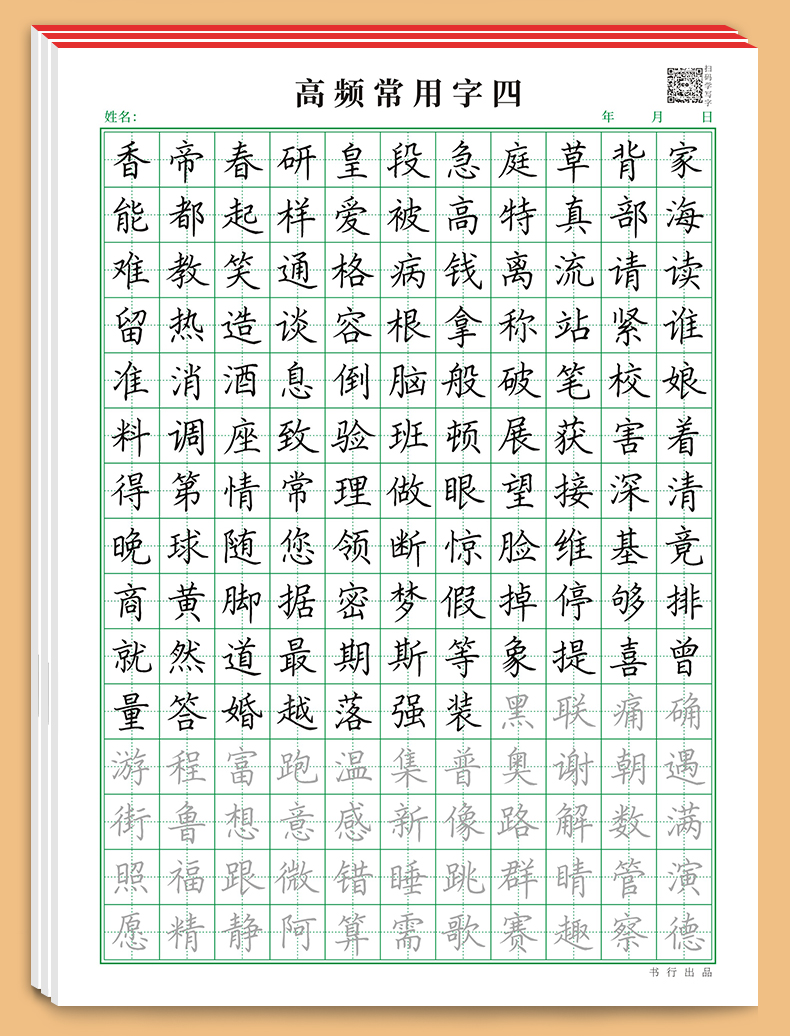 高频常用字四
扫码学写字
姓名: 年 月 日
香帝春研皇段急庭草背家
能都起样爱被高特真部海
难教笑通格病钱离流请读
留热造谈容根拿称站紧谁
准消酒息倒脑般破笔校娘
料调座致验班顿展获害着
得第情常理做眼望接深清
晚球随您领断惊脸维基竟
商黄脚据密梦假掉停够排
就然道最期斯等象提喜曾
量答婚越落强装黑联痛确
游程富跑温集普奥谢朝遇
街鲁想意感新像路解数满
照福跟微错睡跳群晴管演
愿精静阿算需歌赛趣察德
书行出品